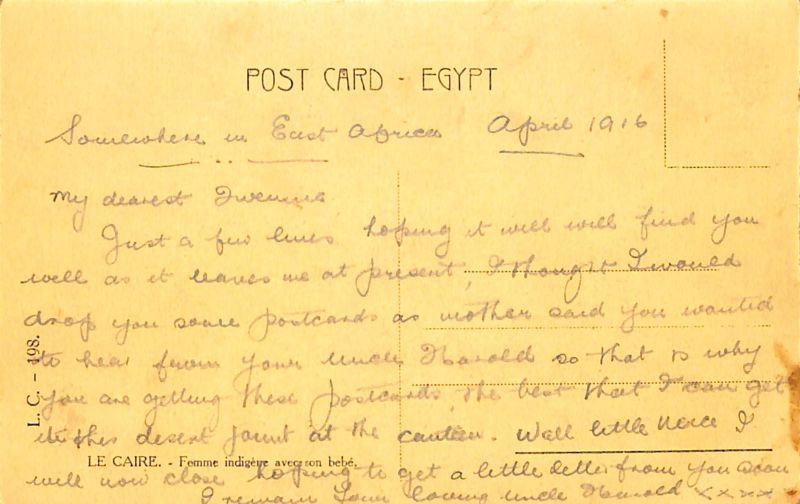 POST CARD - EGYPT
Somewhere in East Africa April 1916
My dearest
Just a few lines hoping it will will find you
well as it leaves me at present, I thought I would
drop you some postcards as mother said you wanted
to hear from your uncle Harold so that is why
you are getting these postcards, the best that I can get
in this desert at the canteen. Well little niece I
will now close hoping to get a little letter from you soon
I remain Your loving uncle Harold xxxx
L. C. - 198.
LE CAIRE. - Femme indigène avec son bebé.